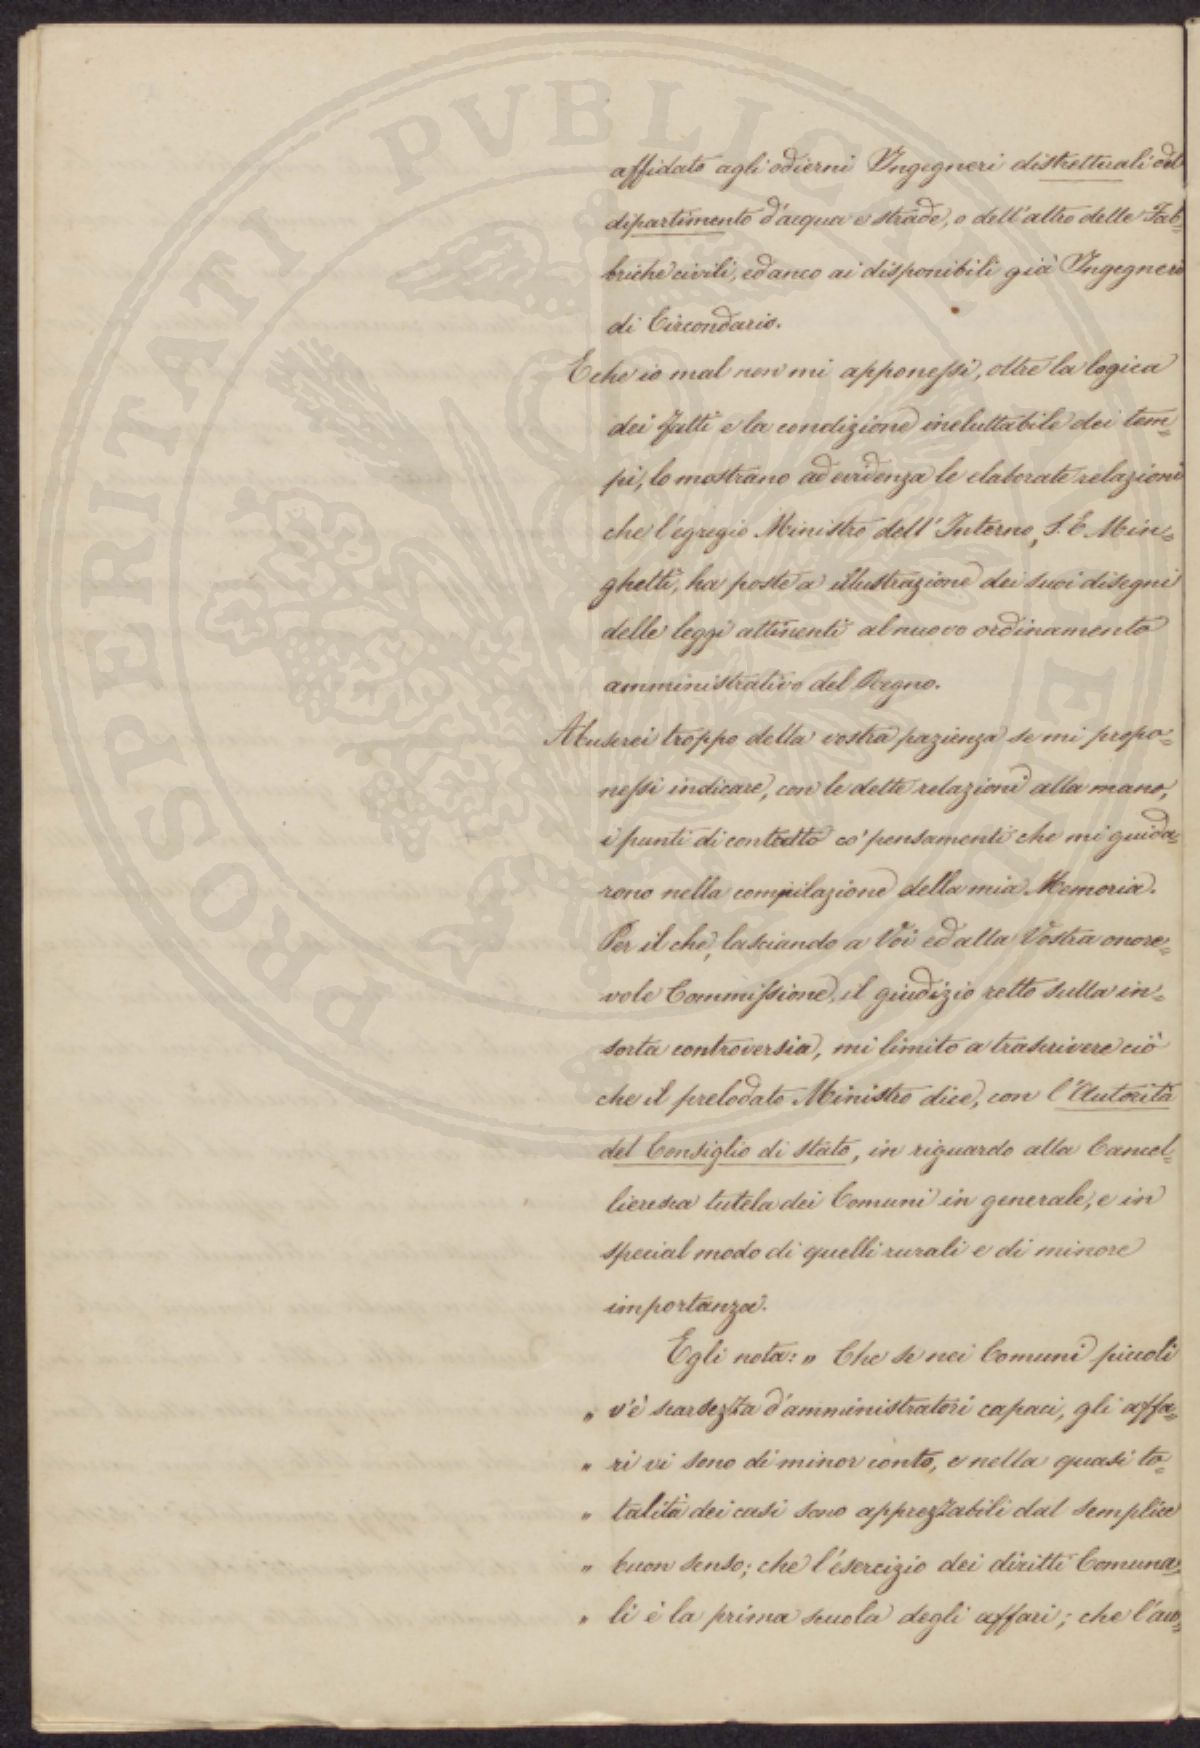 affidato agli odierni Ingegneri distrettuali del
dipartimento d'acqua e strade, o dell'altro delle Fab=
briche civili, ed anco ai disponibili già Ingegneri
di Circondario.
E che io mal non mi apponessi, oltre la logica
dei fatti e la condizione ineluttabile dei tem=
pi, lo mostrano ad evidenza le elaborate relazioni
che l'egregio Ministro dell'Interno, S. E. Min=
ghetti, ha poste a illustrazione dei suoi disegni
delle leggi attinenti al nuovo ordinamento
amministrativo del Regno.
Abuserei troppo della vostra pazienza se mi propo=
nessi indicare, con le dette relazioni alla mano,
i punti di contatto co' pensamenti che mi guida=
rono nella compilazione della mia Memoria.
Per il che, lasciando a Voi ed alla Vostra onore=
vole Commissione, il giudizio retto sulla in=
sorta controversia, mi limito a trascrivere ciò
che il prelodato Ministro dice, con l'Autorità
del Consiglio di stato, in riguardo alla Cancel=
lieresca tutela dei Comuni in generale, e in
special modo di quelli rurali e di minore
importanza.
Egli nota: " Che se nei Comuni piccoli
" v'è scarsezza d'amministratori capaci, gli affa=
" ri vi sono di minor conto, e nella quasi to=
" talità dei casi sono apprezzabili dal semplice
" buon senso; che l'esercizio dei diritti Comuna=
" li è la prima scuola degli affari; che l'au=
PROSPERITATI PVBLICAE